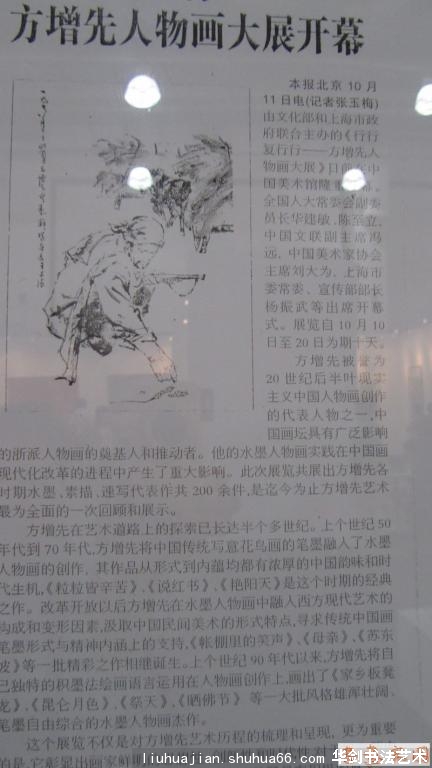 方增先人物画大展开幕
本报北京10月
11日电(记者张玉梅)
由文化部和上海市政
府联合主办的《行行
复行行——方增先人
物画大展》日前在中
国美术馆隆
全国人大常委会副委
员长华建敏、陈至立,
中国文联副主席冯
远,中国美术家协会
主席刘大为,上海市
委常委、宣传部部长
杨振武等出席开幕
式。展览自10月10
日至20日为期十天。
方增先被誉为
20世纪后半叶现实
主义中国人物画创作
的代表人物之一,中
国画坛具有广泛影响
的浙派人物画的奠基人和推动者。他的水墨人物画实践在中国画
现代化改革的进程中产生了重大影响。此次展览共展出方增先各
时期水墨、素描、速写代表作共200余件,是迄今为止方增先艺术
最为全面的一次回顾和展示。
方增先在艺术道路上的探索已长达半个多世纪。上个世纪50
年代到70年代,方增先将中国传统写意花鸟画的笔墨融入了水墨
人物画的创作,其作品从形式到内蕴均都有浓厚的中国韵味和时
代生机,《粒粒皆辛苦》、《说红书》、《艳阳天》是这个时期的经典
之作。改革开放以后方增先在水墨人物画中融入西方现代艺术的
构成和变形因素,汲取中国民间美术的形式特点,寻求传统中国画
笔墨形式与精神内涵上的支持,《帐棚里的笑声》、《母亲》、《苏东
坡》等一批精彩之作相继诞生。上个世纪90年代以来,方增先将自
己独特的积墨法绘画语言运用在人物画创作上,画出了《家乡板凳
龙》、《昆仑月色》、《祭天》、《晒佛节》等一大批风格雄浑壮阔、
笔墨自由综合的水墨人物画杰作。
这个展览不仅是对方增先艺术历程的梳理和呈现,更为重要
的是,它彰显出画家鲜
http://liuhuajian.shufa66.com/ 华剑书法艺术